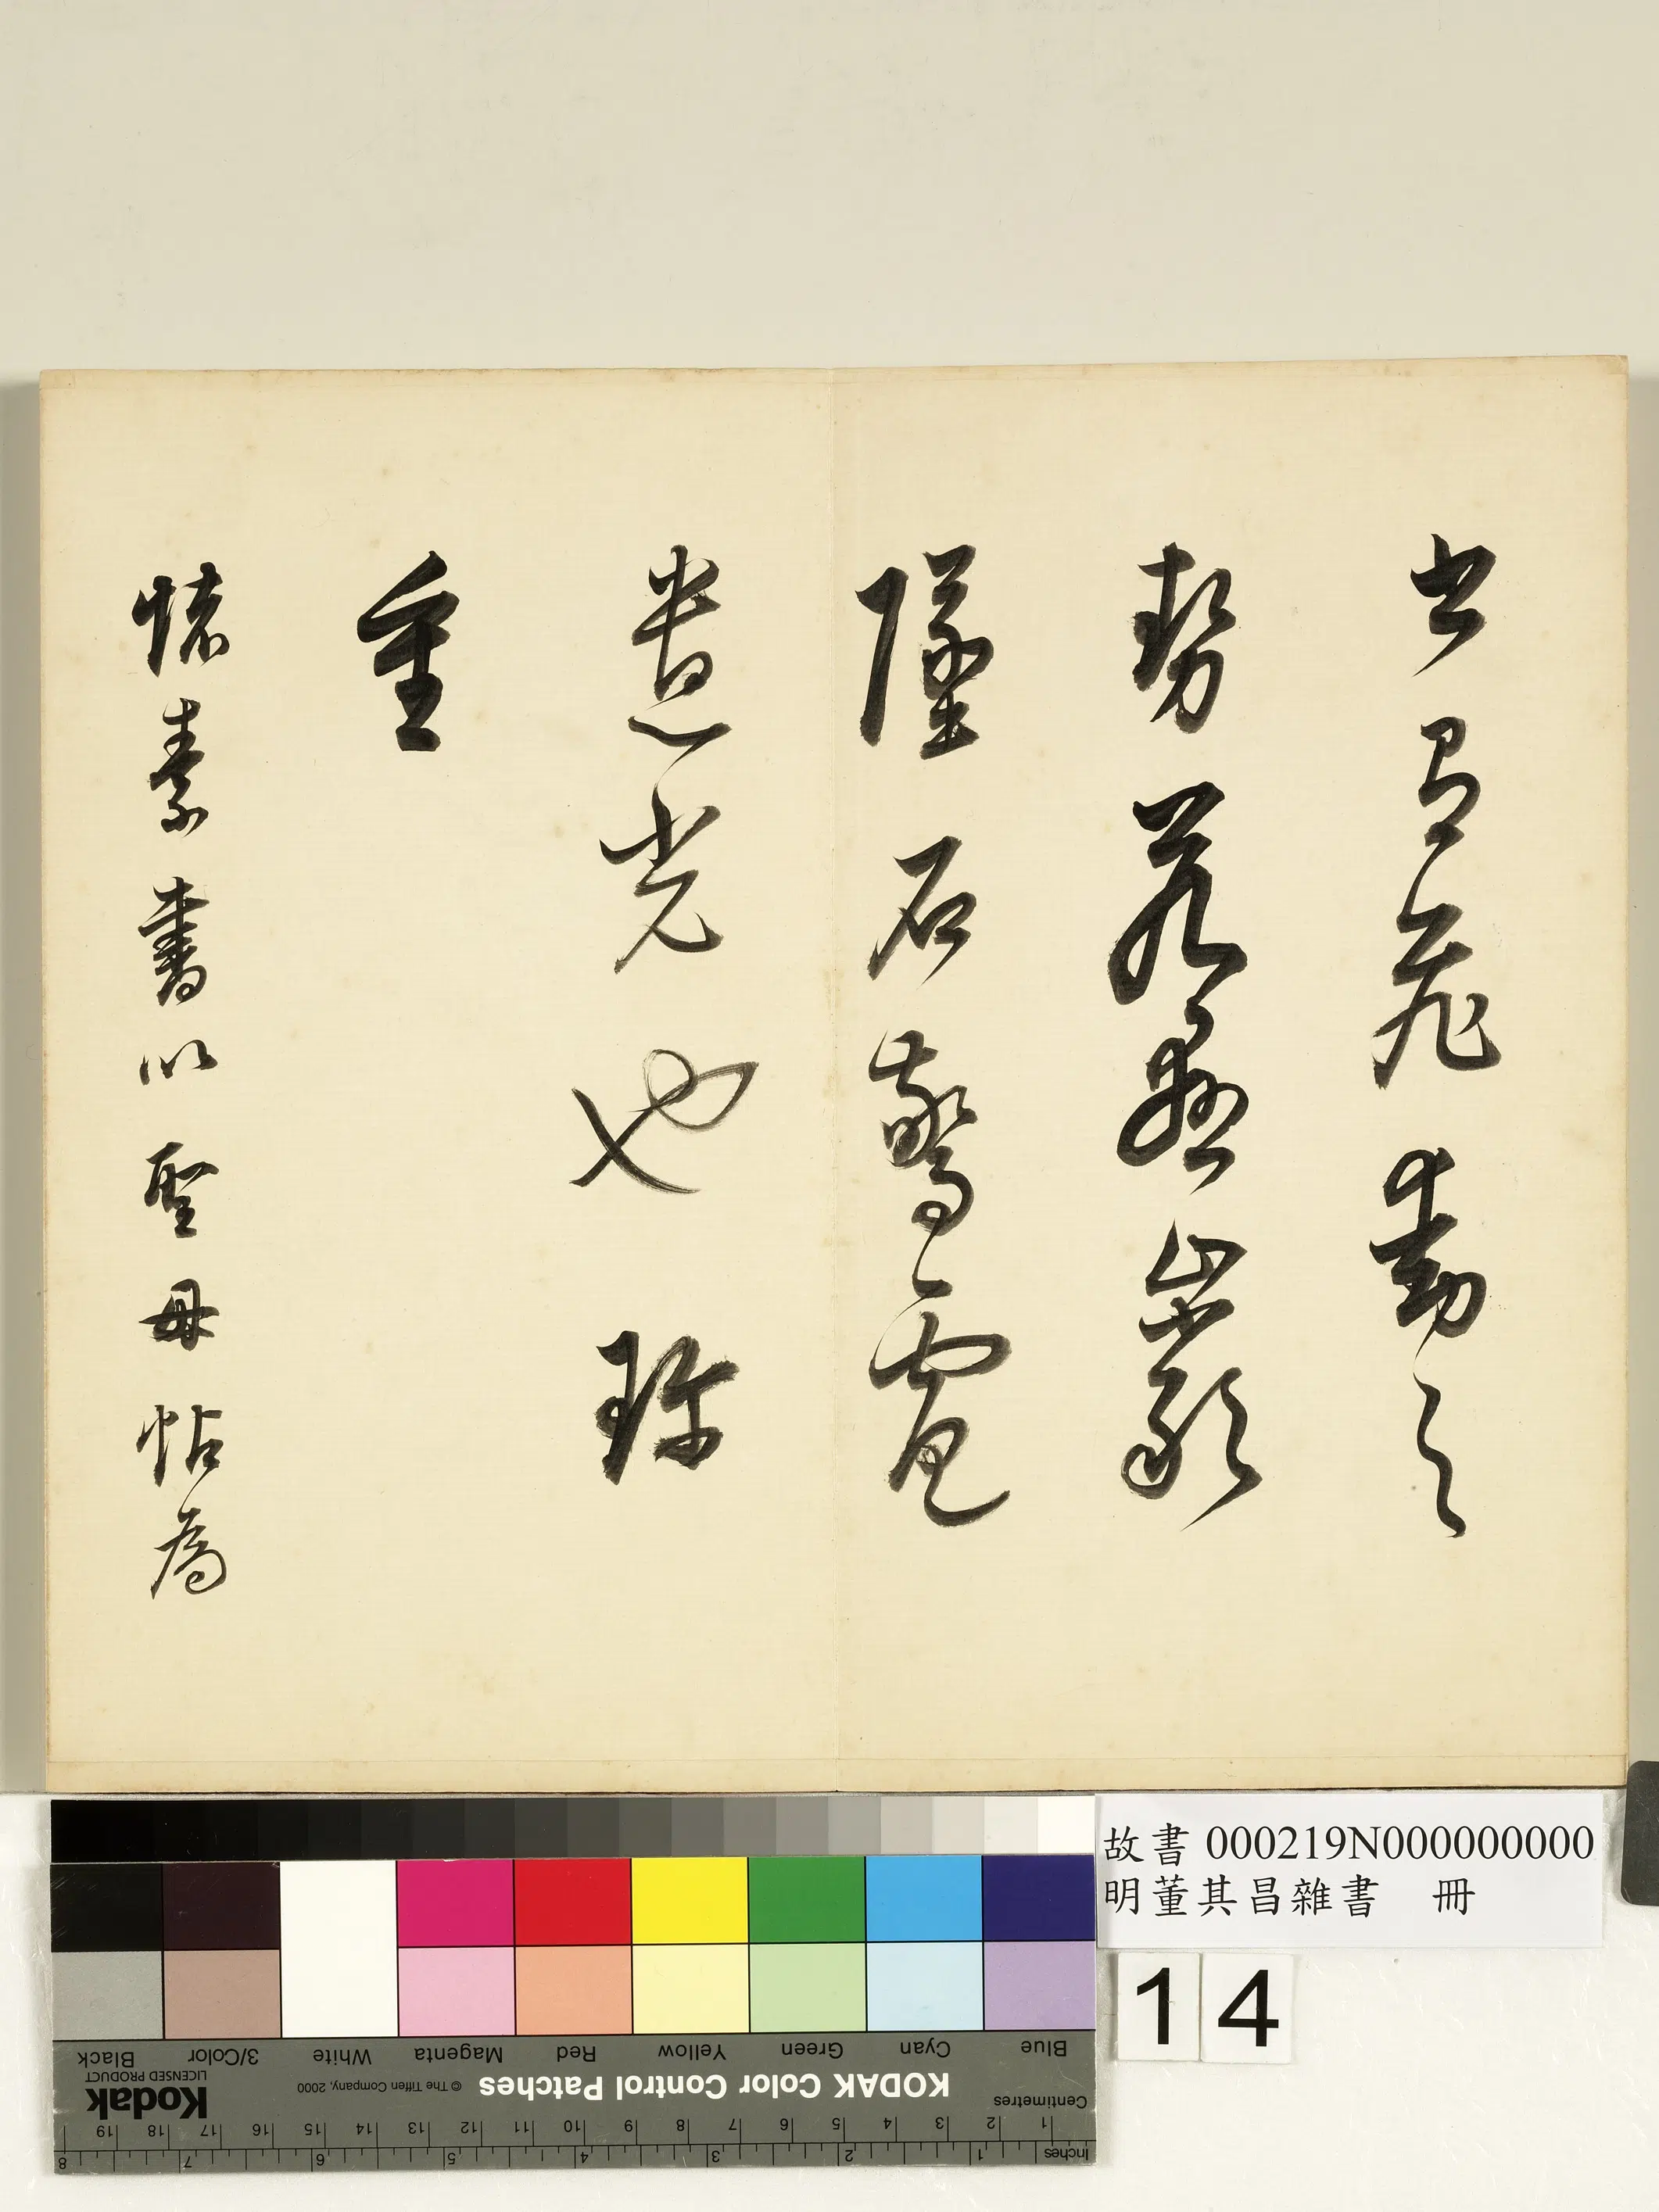 書有飛動之
勢若懸巖
墜石驚電
遺光也珍
重
懷素書以聖母帖為
故書 000219N000000000
明董其昌雜書 冊
14
Blue Cyan Green Yellow Red Magenta White 3/Color Black
KODAK Color Control Patches © The Tiffen Company, 2000 Kodak LICENSED PRODUCT
Centimetres 1 2 3 4 5 6 7 8 9 10 11 12 13 14 15 16 17 18 19
Inches 1 2 3 4 5 6 7 8